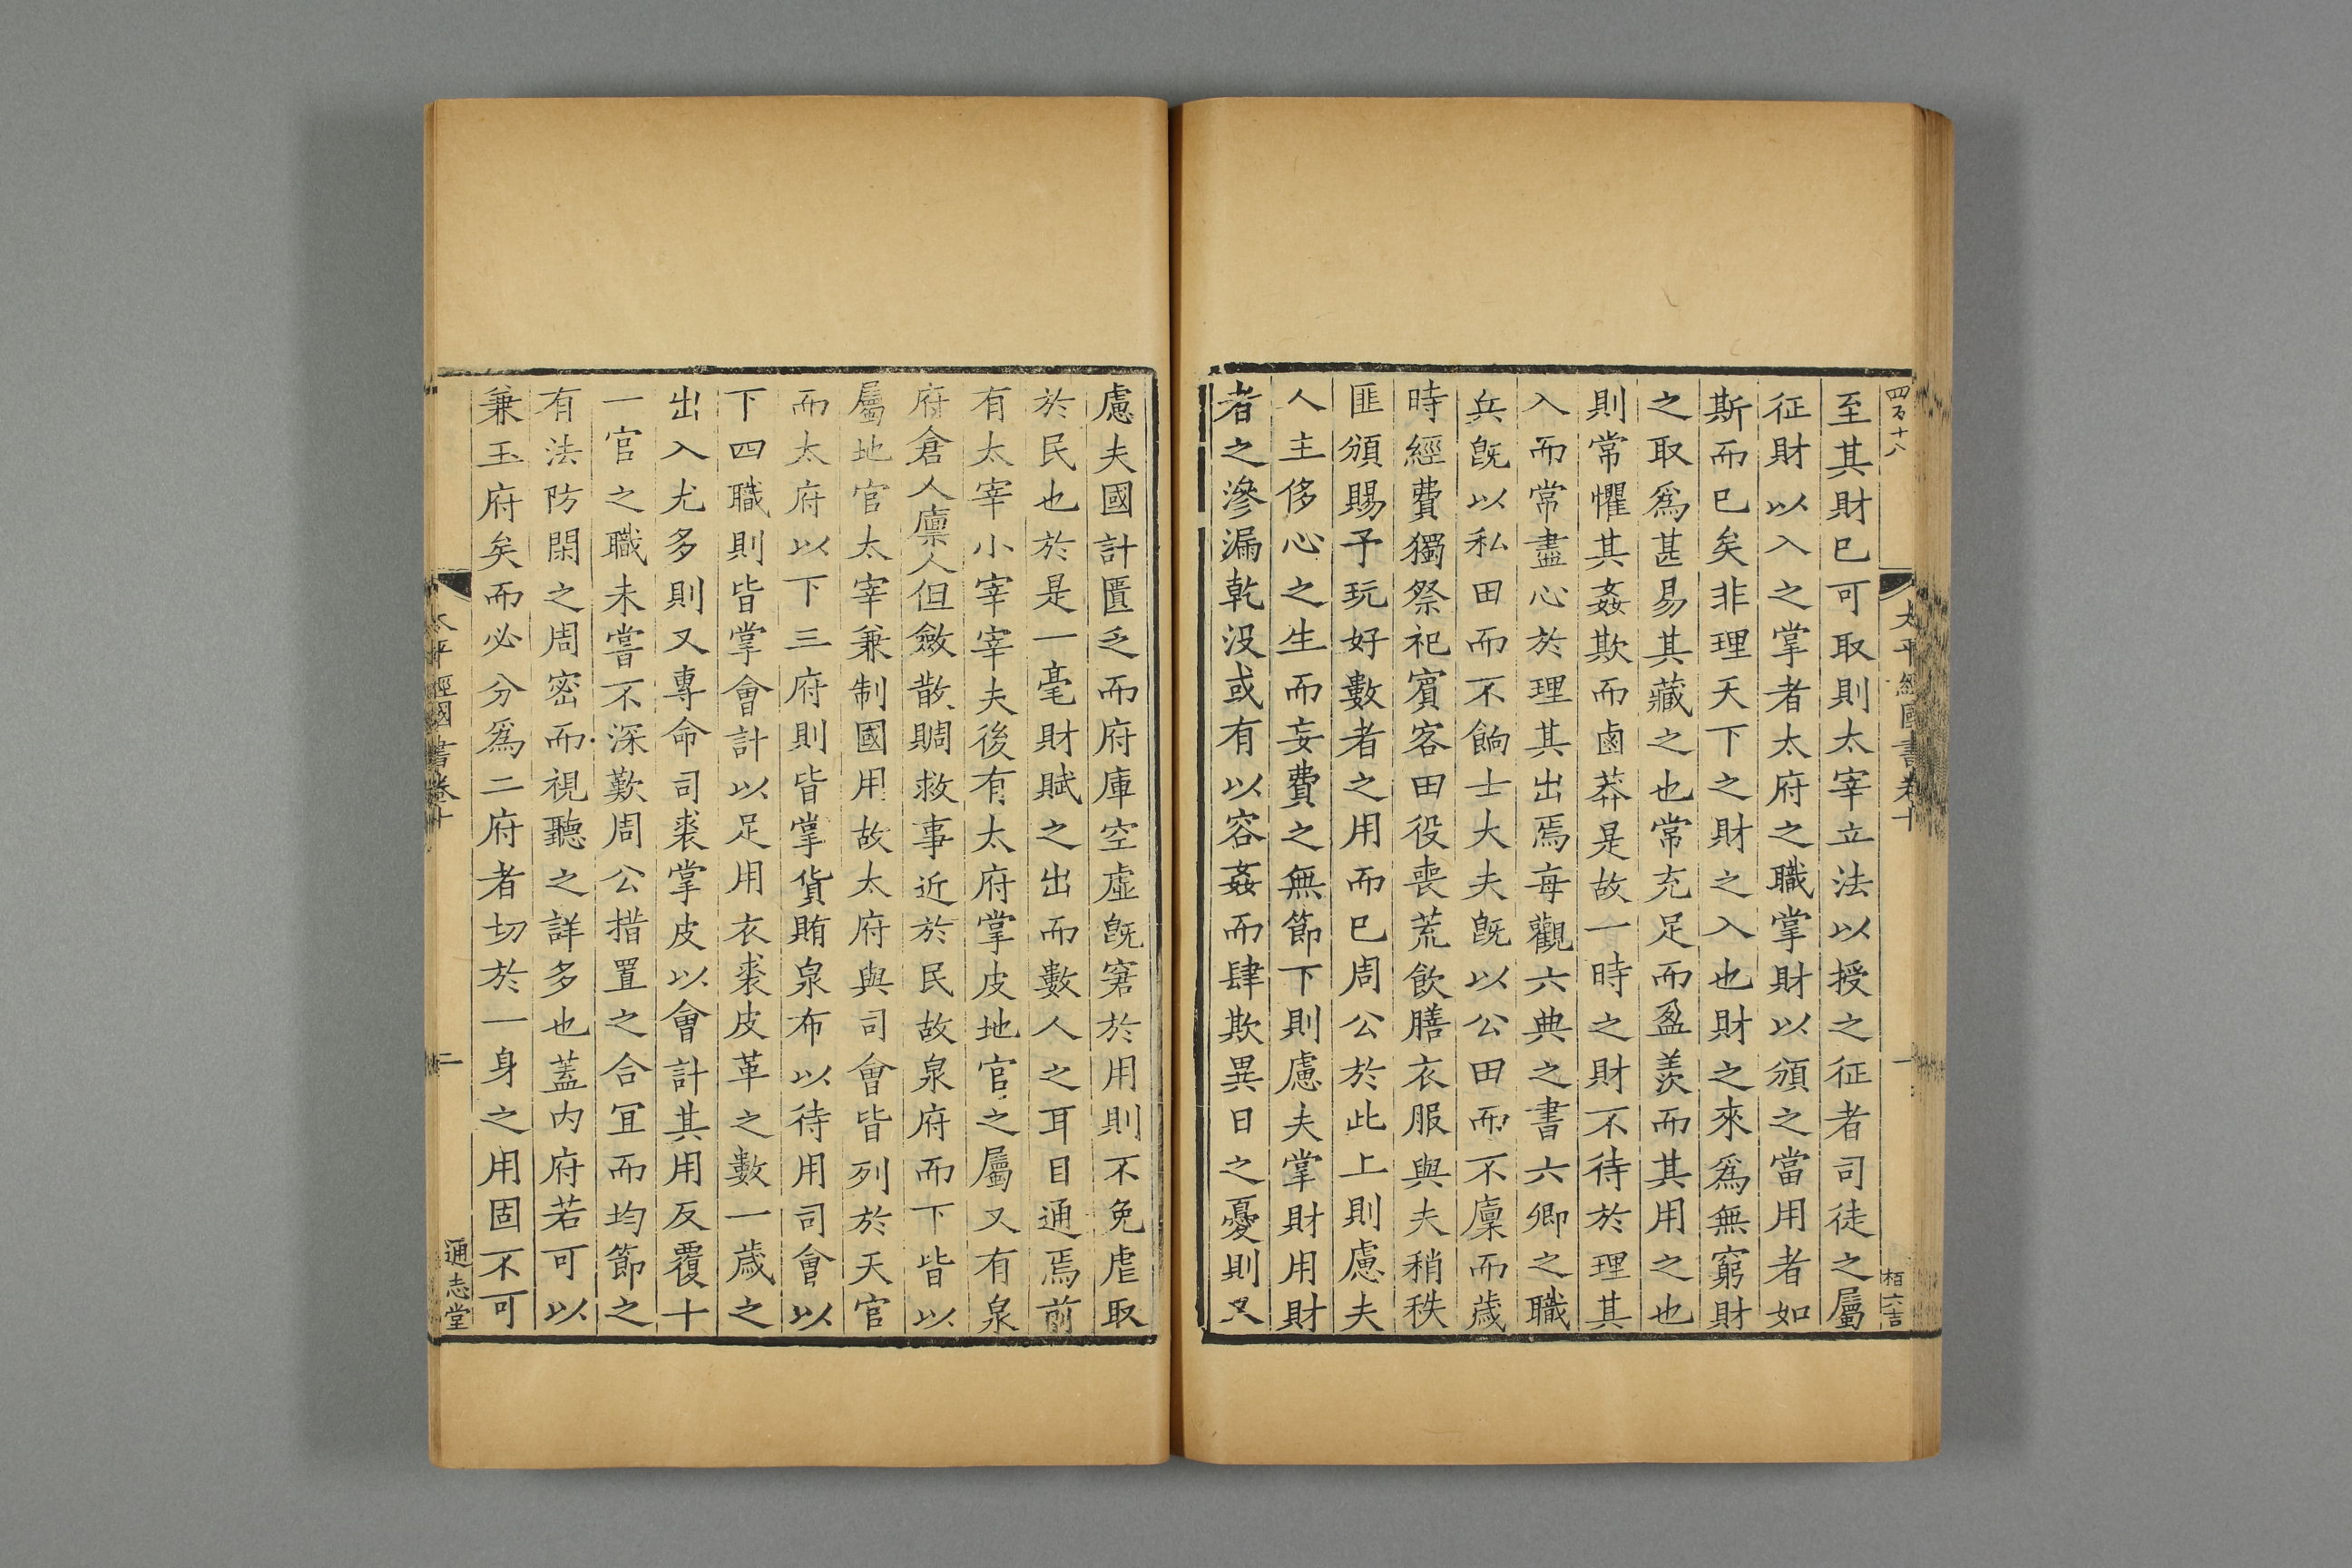 四百十八
太平經國書卷十
一
栢六吉
至其財已可取則太宰立法以授之征者司徒之屬
征財以入之掌者太府之職掌財以頒之當用者如
斯而已矣非理天下之財之入也財之來爲無窮財
之取爲甚易其藏之也常充足而盈羨而其用之也
則常懼其姦欺而鹵莽是故一時之財不待於理其
入而常盡心於理其出焉每觀六典之書六卿之職
兵旣以私田而不餉士大夫旣以公田而不廩而歲
時經費獨祭祀賓客田役喪荒飲膳衣服與夫稍秩
匪頒賜予玩好數者之用而已周公於此上則慮夫
人主侈心之生而妄費之無節下則慮夫掌財用財
者之滲漏乾没或有以容姦而肆欺異日之憂則又
慮夫國計匱乏而府庫空虛旣窘於用則不免虐取
於民也於是一毫財賦之出而數人之耳目通焉前
有太宰小宰宰夫後有太府掌皮地官之屬又有泉
府倉人廩人但斂散賙救事近於民故泉府而下皆以
屬地官太宰兼制國用故太府與司會皆列於天官
而太府以下三府則皆掌貨賄泉布以待用司會以
下四職則皆掌會計以足用衣裘皮革之數一歲之
出入尤多則又專命司裘掌皮以會計其用反覆十
一官之職未嘗不深歎周公措置之合宜而均節之
有法防閑之周密而視聽之詳多也蓋内府若可以
兼玉府矣而必分爲二府者切於一身之用固不可
太平經國書卷十
二
通志堂